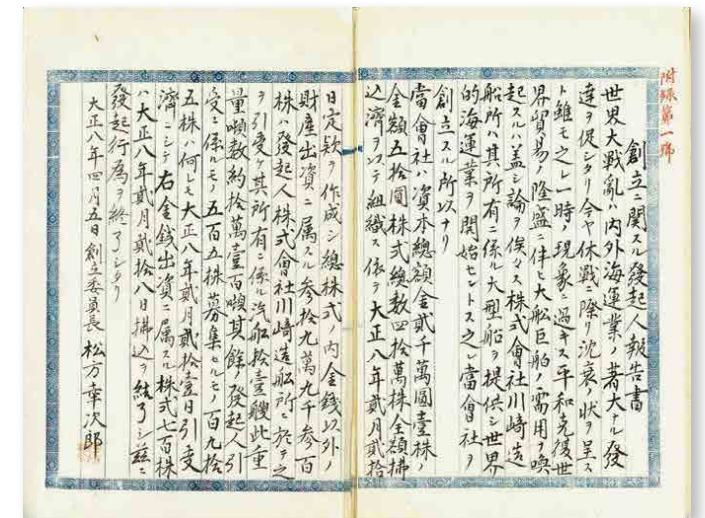 附録第一号
創立ニ関スル發起人報告書
世界大戰亂ハ内外海運業ノ著大ナル發
達ヲ促シタリ今ヤ休戰ニ際リ沈衰ノ状ヲ呈ス
ト雖モ之レ一時ノ現象ニ過キス平和克復世
界貿易ノ隆盛ニ伴ヒ大船巨舶ノ需用ヲ喚
起スルハ蓋シ論ヲ俟タス株式會社川崎造
船所ハ其所有ニ係ル大型船ヲ提供シ世界
的海運業ヲ開始セントス之レ當會社ヲ
創立スル所以ナリ
當會社ハ資本總額金貳千萬圓壹株ノ
金額五拾圓株式總数四拾萬株全額拂
込濟ヲ以テ組織ス依テ大正八年貳月貳拾
日定款ヲ作成シ總株式ノ内金錢以外ノ
財産出資ニ属スル参拾九萬九千参百
株ハ發起人株式會社川崎造船所ニ於テ之
ヲ引受ケ其所有ニ係ル汽船拾壹艘此ノ重
量噸数約拾萬壹百噸其餘ノ發起人引
受ニ係ルモノ五百五株募集セルモノ百九拾
五株ハ何レモ大正八年貳月貳拾壹日引受
濟ニシテ右金錢出資ニ属スル株式七百株
ハ大正八年貳月貳拾八日拂込ヲ結了シ茲ニ
發起行為ヲ終了シタリ
大正八年四月五日創立委員長 松方幸次郎